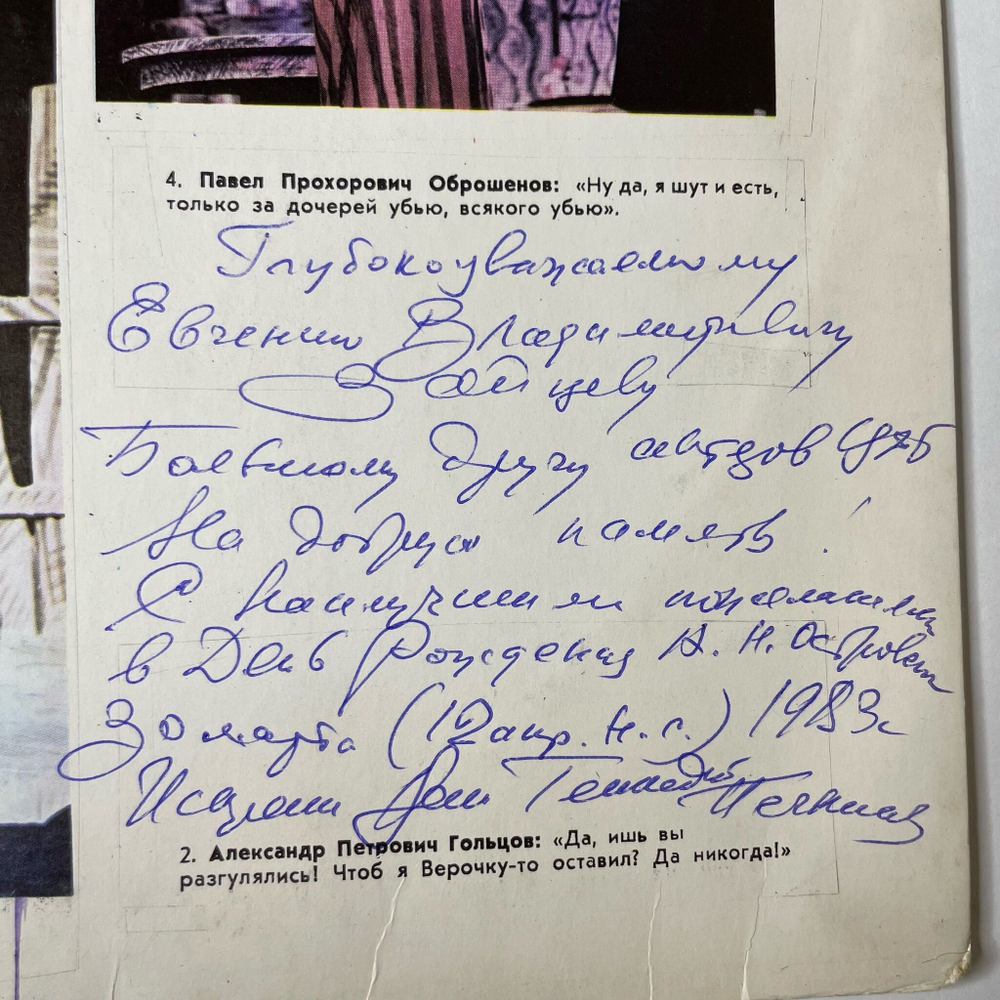 4. Павел Прохорович Оброшенов: «Ну да, я шут и есть,
только за дочерей убью, всякого убью».
Глубокоуважаемому
Евгению Владимировичу
Зайцеву
Большому другу
На добрую память!
С наилучшими пожеланиями
в День Рождения А. Н. Островского
30 марта (12 апр. н. с.) 1983 г.
2. Александр Петрович Гольцов: «Да, ишь вы
разгулялись! Чтоб я Верочку-то оставил? Да никогда!»